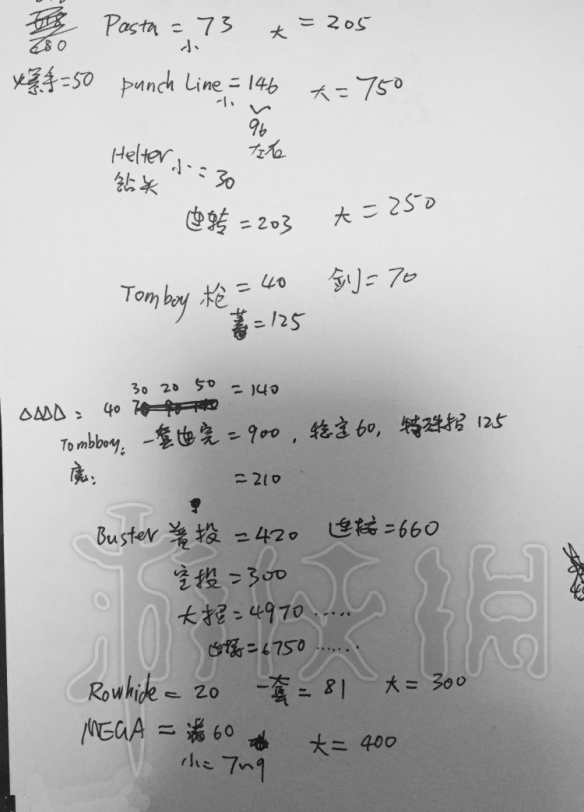 680 Pasta = 73 大 = 205
小
爆手=50 punch Line = 146 大 = 750
小
96
左右
Helter 小 = 30
钻头
连转 = 203 大 = 250
Tomboy 枪 = 40 剑 = 70
蓄 = 125
30 20 50 = 140
△△△△: 40
Tombboy: 一套连完 = 900, 稳定60, 特殊招 125
= 210
Buster 普投 = 420 连接 = 660
空投 = 300
大招 = 4970 ·····
连接 = 6750 ······
Rowhide = 20 一套 = 81 大 = 300
MEGA = 满60 大 = 400
小 = 7~9
游侠网